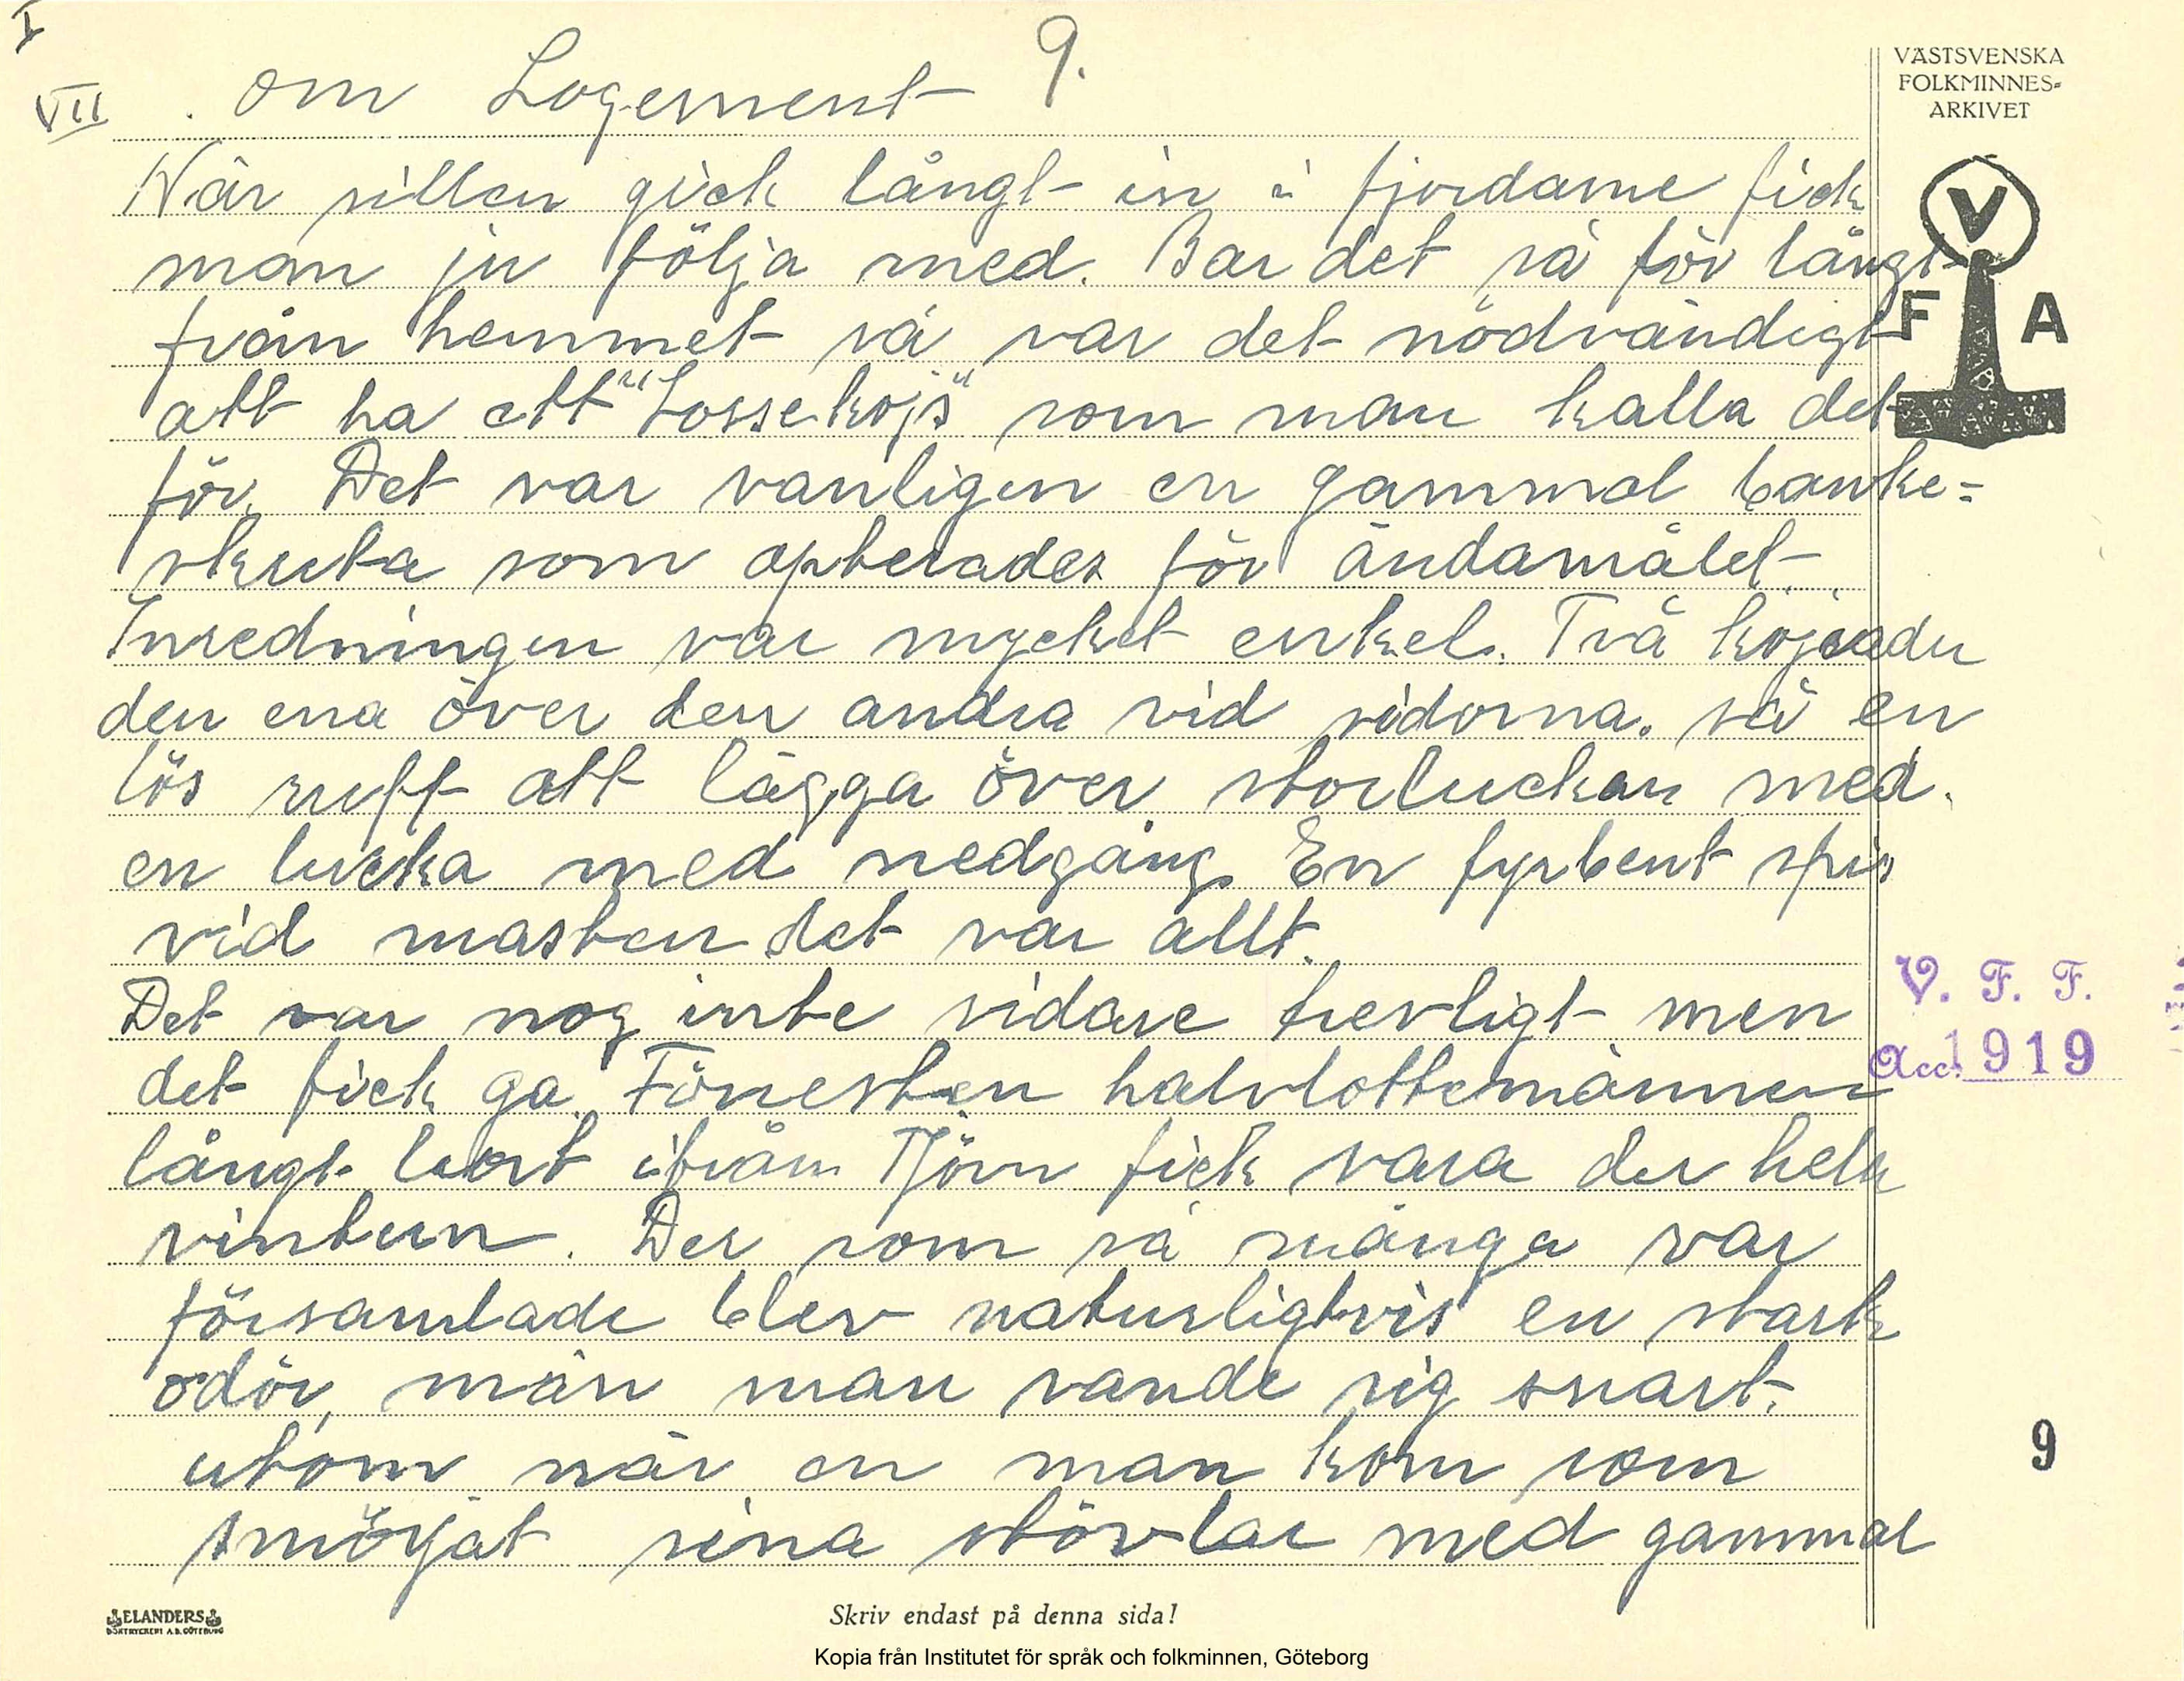 I
VII . om Logement 9.
När sillen gick långt in i fjordarne fick
man ju följa med. Bar det så för långt
från hemmet så var det nödvändigt
att ha ett "Lossekojs" som man kalla det
för. Det var vanligen en gammal banke=
skuta som apterades för ändamålet.
Inredningen var mycket enkel. Två kojrader
den ena över den andra vid sidorna. så en
lös ruff att lägga över storluckan med.
en lucka med nedgång. En fyrbent spis
vid masten det var allt.
Det var nog inte vidare trevligt men
det fick ga. Förresten halvlottemännen
långt bort ifrån Tjörn fick vara der hela
vintern. Der som så många var
församlade blev naturligtvis en stark
odör, män man vande sig snart.
utom när en man kom som
smörjat sina stövlar med gammal
VÄSTSVENSKA
FOLKMINNES=
ARKIVET
V
F A
V. F. F.
Acc. 1919
9
ELANDERS
BOKTRYCKERI A.B. GÖTEBORG
Skriv endast på denna sida!
Kopia från Institutet för språk och folkminnen, Göteborg